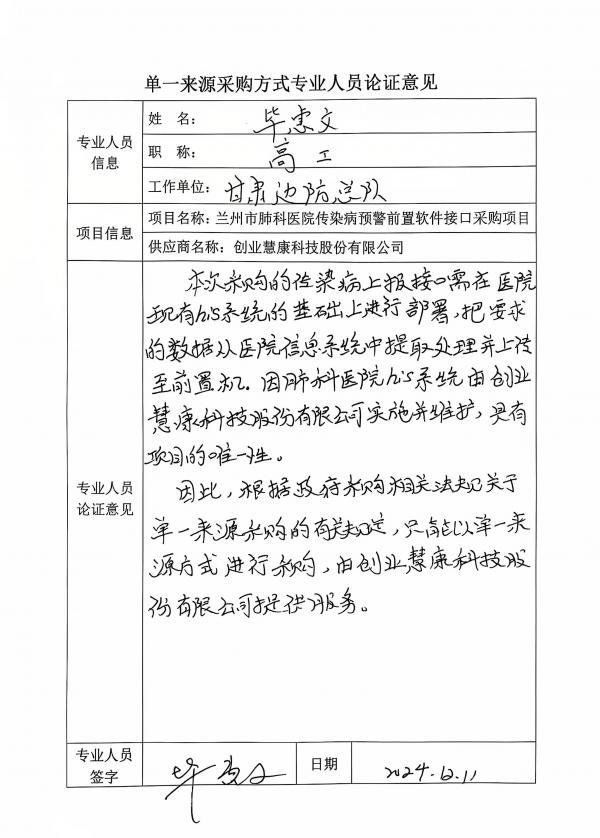 单一来源采购方式专业人员论证意见
专业人员
信息
姓 名：
职 称：高工
工作单位：甘肃边防总队
项目信息
项目名称：兰州市肺科医院传染病预警前置软件接口采购项目
供应商名称：创业慧康科技股份有限公司
专业人员
论证意见
本次采购的传染病上报接口需在医院
现有his系统的基础上进行部署，把要求
的数据从医院信息系统中提取处理并上传
至前置机。因肺科医院his系统由创业
慧康科技股份有限公司实施并维护，具有
项目的唯一性。
因此，根据政府采购相关法规关于
单一来源采购的有关规定，只能以单一来
源方式进行采购，由创业慧康科技股
份有限公司提供服务。
专业人员
签字
日期
2024.12.11